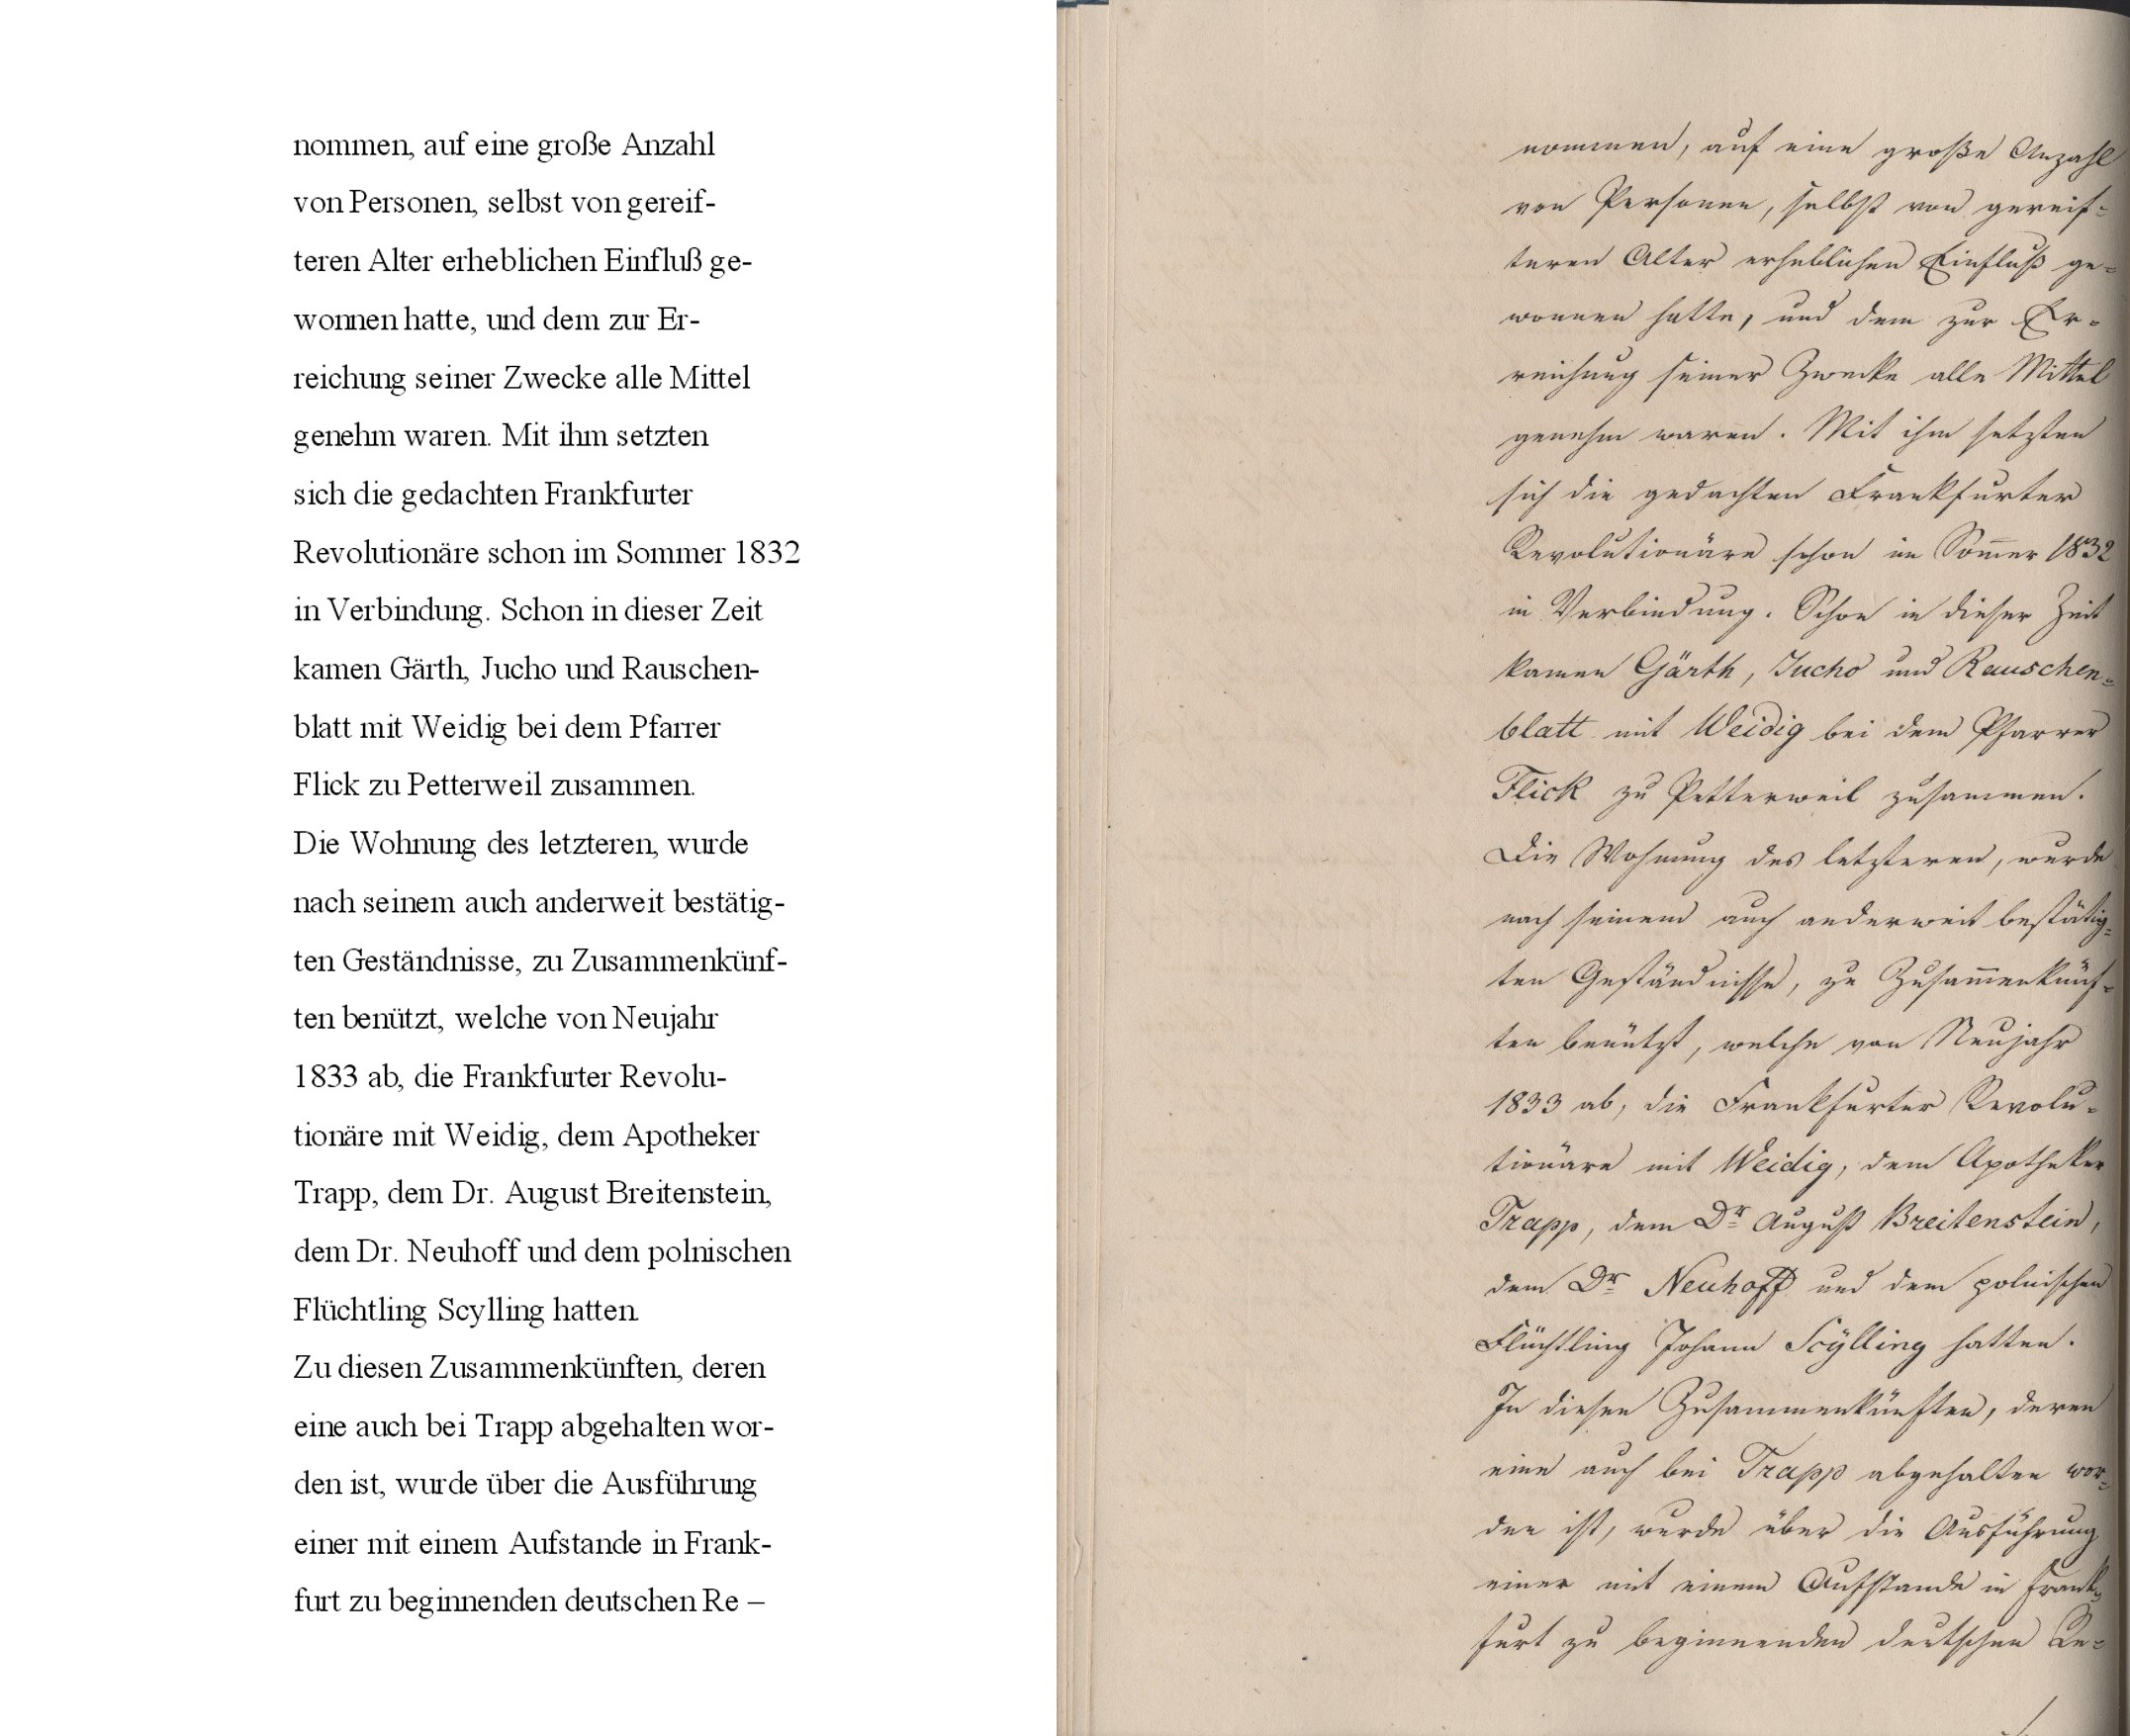 nommen, auf eine große Anzahl
von Personen, selbst von gereif-
teren Alter erheblichen Einfluß ge-
wonnen hatte, und dem zur Er-
reichung seiner Zwecke alle Mittel
genehm waren. Mit ihm setzten
sich die gedachten Frankfurter
Revolutionäre schon im Sommer 1832
in Verbindung. Schon in dieser Zeit
kamen Gärth, Jucho und Rauschen-
blatt mit Weidig bei dem Pfarrer
Flick zu Petterweil zusammen.
Die Wohnung des letzteren, wurde
nach seinem auch anderweit bestätig-
ten Geständnisse, zu Zusammenkünf-
ten benützt, welche von Neujahr
1833 ab, die Frankfurter Revolu-
tionäre mit Weidig, dem Apotheker
Trapp, dem Dr. August Breitenstein,
dem Dr. Neuhoff und dem polnischen
Flüchtling Scylling hatten.
Zu diesen Zusammenkünften, deren
eine auch bei Trapp abgehalten wor-
den ist, wurde über die Ausführung
einer mit einem Aufstande in Frank-
furt zu beginnenden deutschen Re –
nommen, auf eine große Anzahl
von Personen, selbst von gereif-
teren Alter erheblichen Einfluß ge-
wonnen hatte, und dem zur Er-
reichung seiner Zwecke alle Mittel
genehm waren. Mit ihm setzten
sich die gedachten Frankfurter
Revolutionäre schon im Som̅er 1832
in Verbindung. Schon in dieser Zeit
kamen Gärth, Jucho und Rauschen-
blatt mit Weidig bei dem Pfarrer
Flick zu Petterweil zusammen.
Die Wohnung des letzteren, wurde
nach seinem auch anderweit bestätig-
ten Geständnisse, zu Zusam̅enkünf-
ten benützt, welche von Neujahr
1833 ab, die Frankfurter Revolu-
tionäre mit Weidig, dem Apotheker
Trapp, dem Dr August Breitenstein,
dem Dr Neuhoff und dem polnischen
Flüchtling Johann Scÿlling hatten.
In diesen Zusammenkünften, deren
eine auch bei Trapp abgehalten wor-
den ist, wurde über die Ausführung
einer mit einem Aufstande in Frank-
furt zu beginnenden deutschen Re-